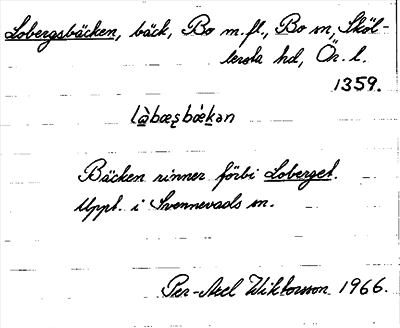 Lobergsbäcken, bäck, Bo m.fl., Bo sn, Sköl-
lersta hd, Ör. l.
1359.
Bäcken rinner förbi Loberget.
Uppt. i Svennevads sn.
Per-Axel Wiktorsson 1966.